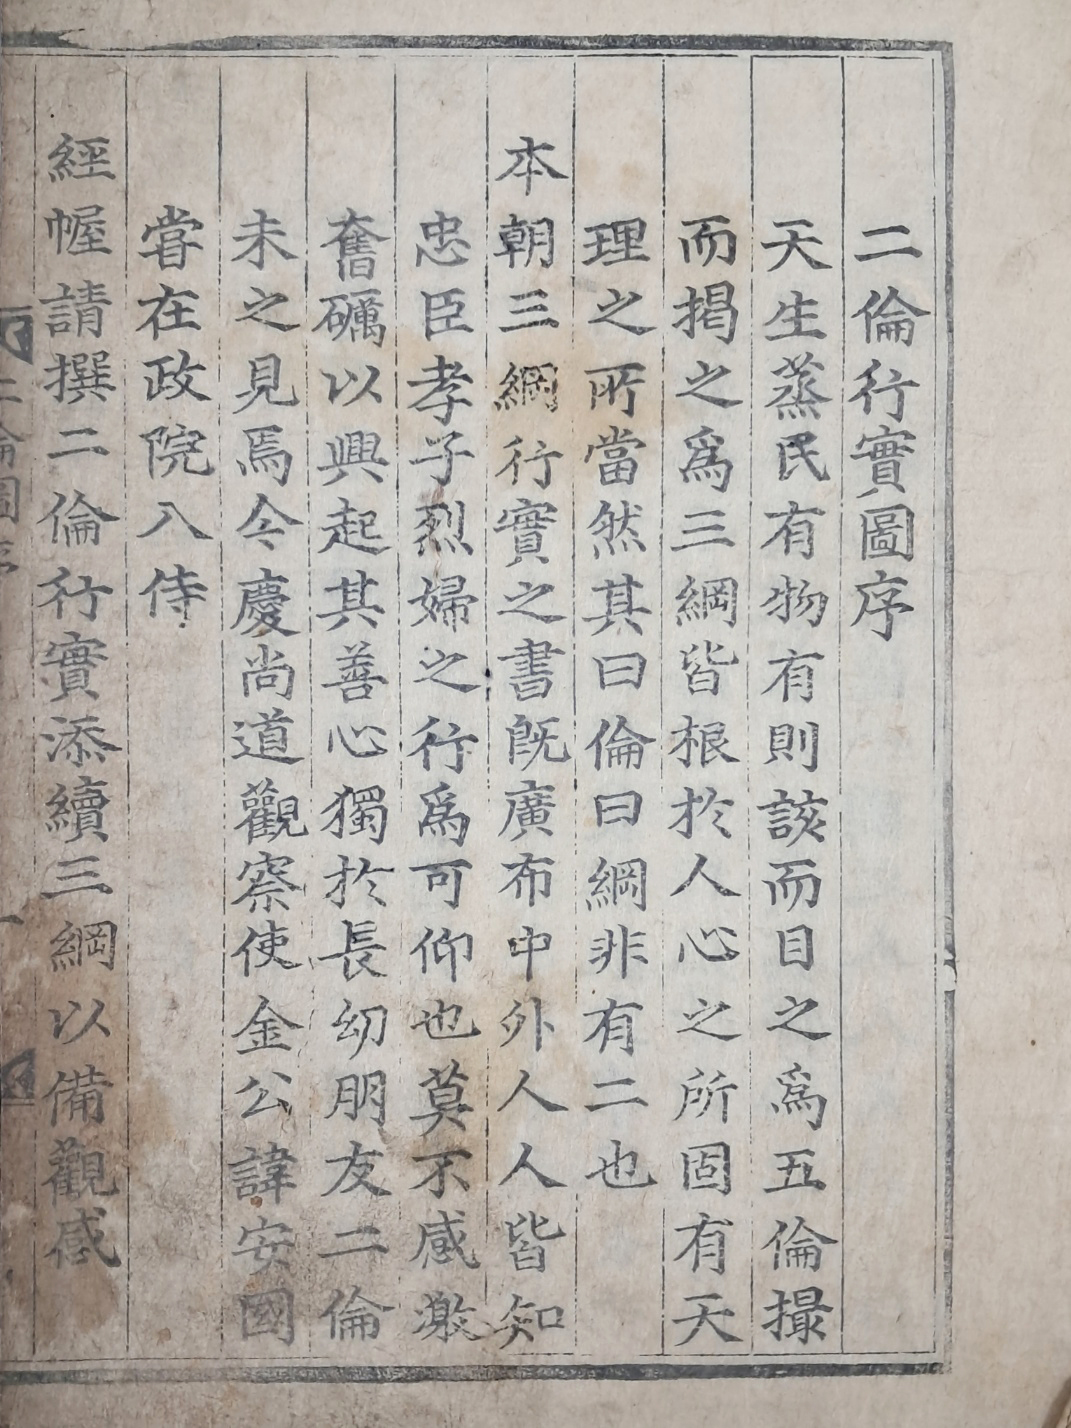 二倫行實圖序
天生蒸民有物有則該而目之爲五倫撮
而揭之爲三綱皆根於人心之所固有天
理之所當然其曰倫曰綱非有二也
本朝三綱行實之書旣廣布中外人人皆知
忠臣孝子烈婦之行爲可仰也莫不感激
奮礪以興起其善心獨於長幼朋友二倫
未之見焉今慶尙道觀察使金公諱安國
嘗在政院入侍
經幄請撰二倫行實添續三綱以備觀感